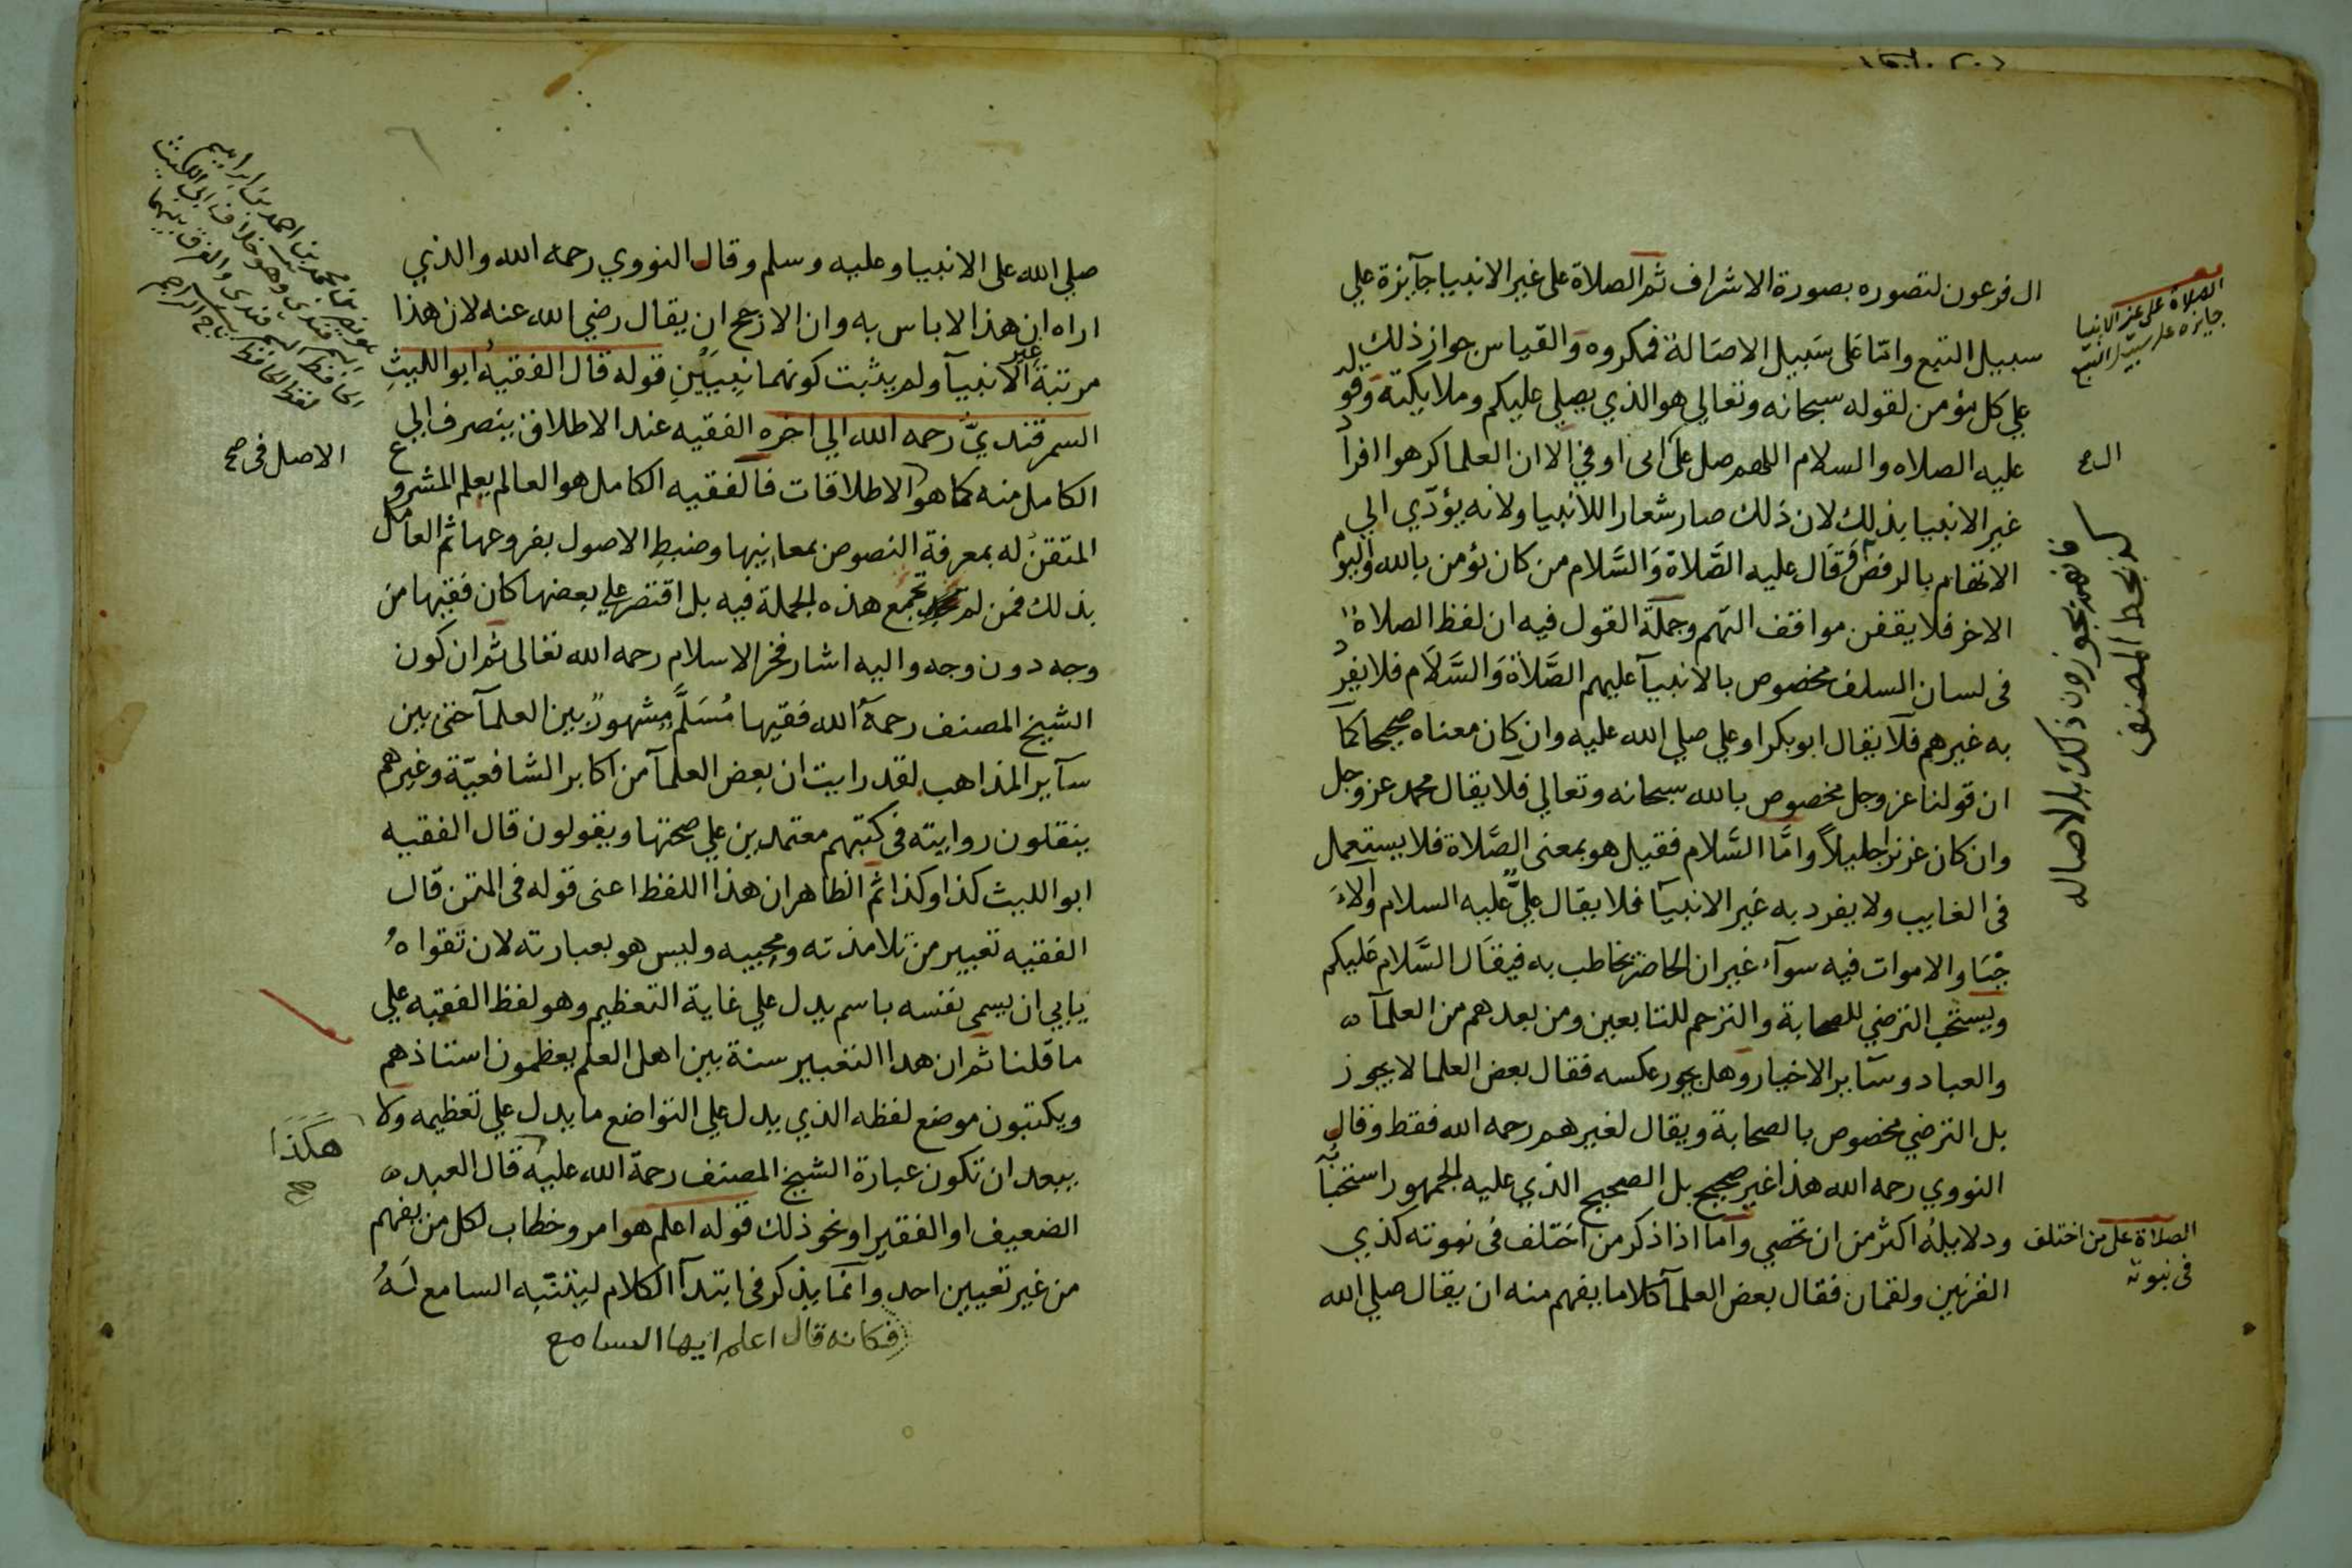 ال فرعون لتصوره بصورة الاشراف ثم الصلاة على غير الانبيا جآئزة علي
سبيل التبع وامّا عَلى سَبيل الاصَالة فمكروه وَالقياس جواز ذلك
علي كل مؤمن لقوله سبحانه وتعالي هو الذي يصلي عليكم وملايكته وقوله
عليه الصلاه والسلام اللهم صل على ال ابى اوفي الا ان العلما كرهوا افراد
غير الانبيا بذلك لان ذلك صار شعارا للانبيا ولانه يؤدّي الي
الاتهام بالرفض وَقَال عليه الصَّلاة وَالسَّلام من كان يؤمن بالله واليوم
الاخر فلا يقفن مواقف التهم وجملة القول فيه ان لفظ الصلاة
فى لسان السلف مخصوص بالانبيآ عليهم الصَّلاة وَالسَّلاَم فلا يفرد
به غيرهم فلا يقال ابو بكر او علي صلي الله عليه وان كان معناه صحيحا كما
ان قولنا عز وجل مخصوص بالله سبحانه وتعالي فلا يقال محمد عز وجل
وان كان عزيزا جليلاً وامَّا السَّلام فقيل هو بمعنى الصَّلاة فلا يستعمل
فى الغايب ولا يفرد به غير الانبيآ فلا يقال عليٌّ عليه السلام والاحْيَا
والاموات فيه سوآء غير ان الحاضر يخاطب به فيقَال السَّلام عَليكم
ويستحَب الترضي للصحابة والترحم للتابعين ومن بعدهم من العلمآ
والعباد وسَآير الاخيار وهل يجوز عكسه فقال بعض العلما لا يجوز
بل الترضي مخصوص بالصحابة ويقال لغيرهم رحمه الله فقط وقال
النووي رحمه الله هذا غير صحيح بل الصحيح الذي عليه الجمهور استحبابُه
ودلايلهُ اكثر من ان تحصي وامّا اذا ذكر من اختلف فى نبوته كذي
القرنين ولقمان فقال بعض العلمآ كلاما يفهم منه ان يقال صلي الله
الصلاة على غير الانبيا
جايزه على سبيل التبع
ال صح
فانهم يجوزون ذلك بالاصاله
كذا بخط المصنف
الصلاة على من اختلف
فى نبوته
صلي الله على الانبيا وعليه وسلم وقال النووي رحمه الله والذي
اراه ان هذا لاباس به وان الارجح ان يقال رضي الله عنه لان هذا
مرتبة غير الانبيآ ولم يثبت كونهما نبيَيْنِ قوله قال الفقيهُ ابو الليثِ
السمرقنديّ رحمه الله الي اخره الفقيه عند الاطلاق ينصرف الي
الكامل منه كما هو الاطلاقات فالفقيه الكامل هو العالم يعلم المشروع
المتقنُ له بمعرفة النصوص بمعانيها وضبطِ الاصول بفروعها ثم العامل
بذلك فمن لم تجمع هذه الجملة فيه بل اقتصر علي بعضها كان فقيها من
وجه دون وجه واليه اشار فخر الاسلام رحمه الله تعالى ثم ان كون
الشيخ المصنف رحمهُ الله فقيها مُسَلَّم مشهورٌ بين العلمآ حتى بين
سآير المذاهب لقد رايت ان بعض العلمآ من اكابر الشافعيّة وغيرهم
ينقلون روايته فى كتبهم معتمدين علي صحتها ويقولون قال الفقيه
ابو الليث كذا وكذا ثم الظاهر ان هذا اللفظ اعنى قوله فى المتن قال
الفقيه تعبير من تلامذته ومحبيه وليس هو بعبارته لان تقواهُ
يابي ان يسمى نفسه باسم يدل علي غاية التعظيم وهو لفظ الفقيه علي
ما قلنا ثم ان هدا التعبير سنة بين اهل العلم يعظمون استاذهم
ويكتبون موضع لفظه الذي يدل علي التواضع ما يدل علي تعظيمه ولا
يبعد ان تكون عبارة الشيخ المصنف رحمة الله عليه قال العبد
الضعيف او الفقير او نحو ذلك قوله اعلم هو امر وخطاب لكل من يفهم
من غير تعيين احد وانمَا يذكر فى ابتدآ الكلام ليتنبّه السامع لَهُ
فكانه قال اعلم ايها السامع
هو نصر بن محمد بن احمد بن ابراهيم
السمرقندى وهو خلاف ابى الليث
الحافظ السمرقندى والفرق بينهما
لفظ الحافظ تاج التراجم
الاصل فى صح
هَكَذَا
صح